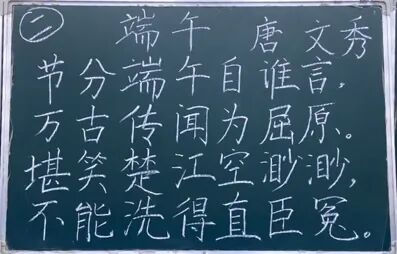 二 端午 唐 文秀
节分端午自谁言，
万古传闻为屈原。
堪笑楚江空渺渺，
不能洗得直臣冤。